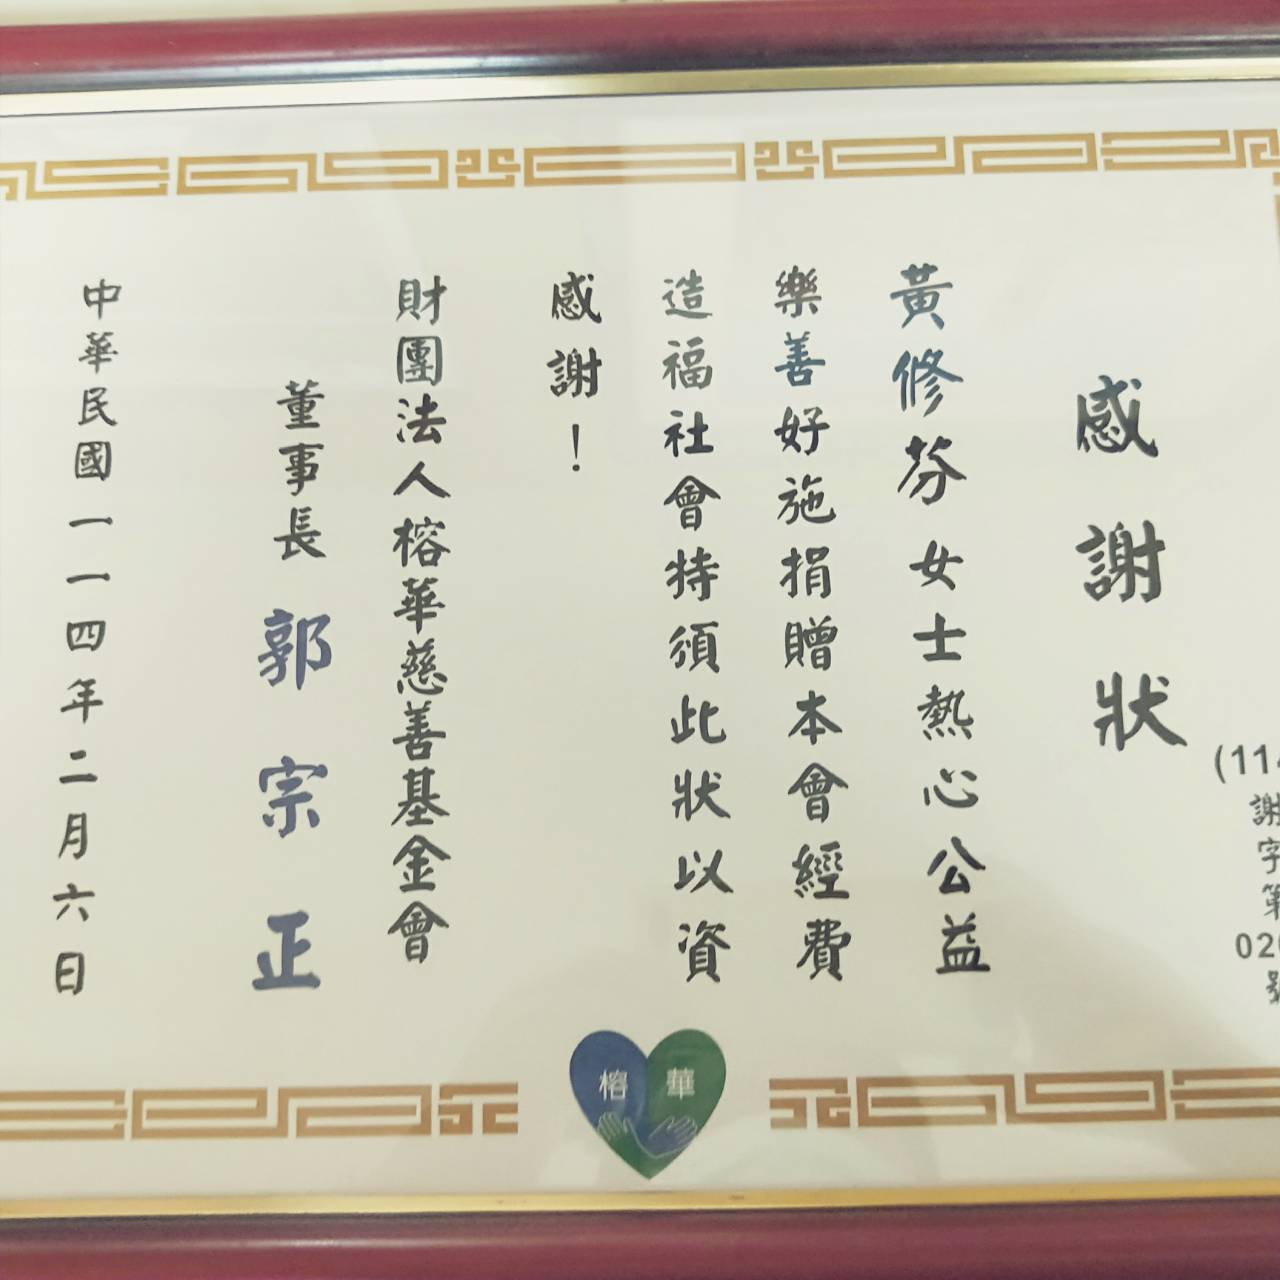 感謝狀
(114
謝
字
第
020
號
黃修芬女士熱心公益
樂善好施捐贈本會經費
造福社會特頒此狀以資
感謝！
財團法人榕華慈善基金會
董事長 郭宗正
中華民國一一四年二月六日
榕華